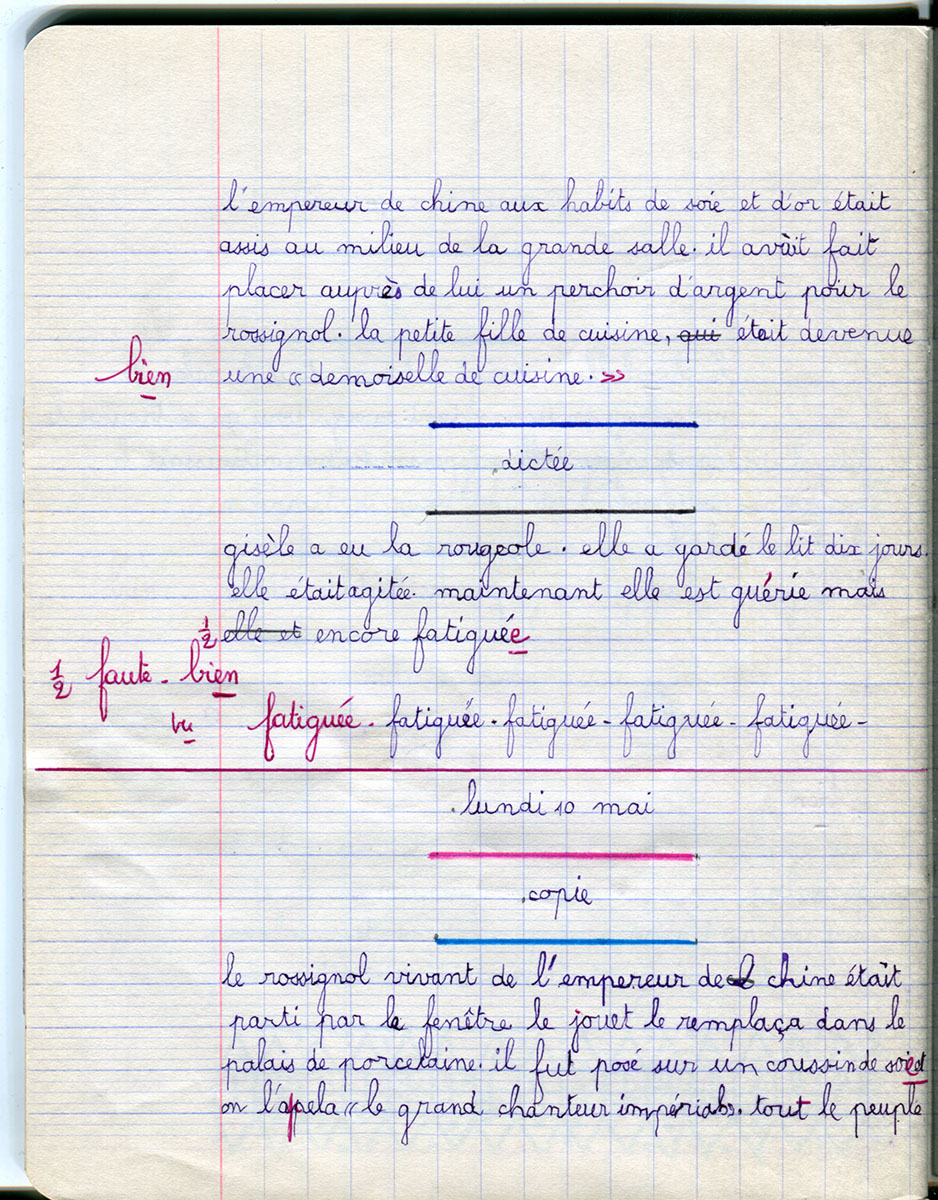 l'empereur de chine aux habits de soie et d'or était
assis au milieu de la grande salle. il avait fait
placer auprès de lui un perchoir d'argent pour le
rossignol. la petite fille de cuisine, qui était devenue
bien une « demoiselle de cuisine. »
dictée
gisèle a eu la rougeole. elle a gardé le lit dix jours.
elle était agitée. maintenant elle est guérie mais
½ elle et encore fatiguée
½ faute - bien
vu fatiguée. fatiguée. fatiguée - fatiguée - fatiguée -
.lundi 10 mai
.copie
le rossignol vivant de l'empereur de chine était
parti par la fenêtre le jouet le remplaça dans le
palais de porcelaine. il fut posé sur un coussin de soie et
on l'appela « le grand chanteur impérial». tout le peuple